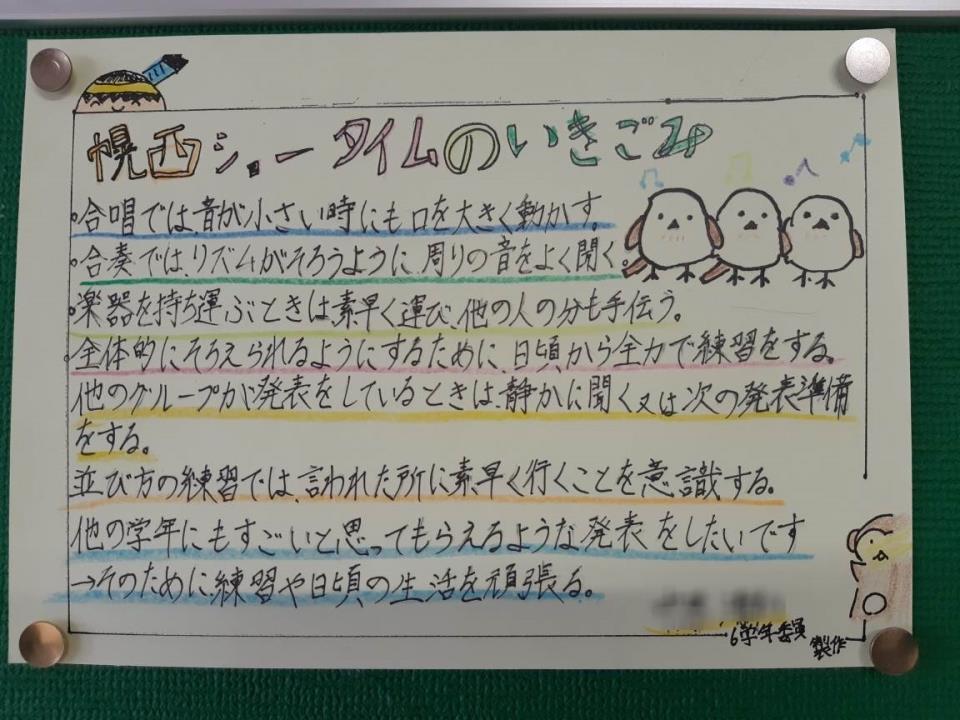 幌西ショータイムのいきごみ
・合唱では音が小さい時にも口を大きく動かす。
・合奏では、リズムがそろうように、周りの音をよく聞く。
・楽器を持ち運ぶときは素早く運び、他の人の分も手伝う。
・全体的にそろえられるようにするために、日頃から全力で練習をする。
他のグループが発表をしているときは、静かに聞く又は次の発表準備
をする。
並び方の練習では、言われた所に素早く行くことを意識する。
他の学年にもすごいと思ってもらえるような発表をしたいです
→そのために練習や日頃の生活を頑張る。
6学年委員
製作